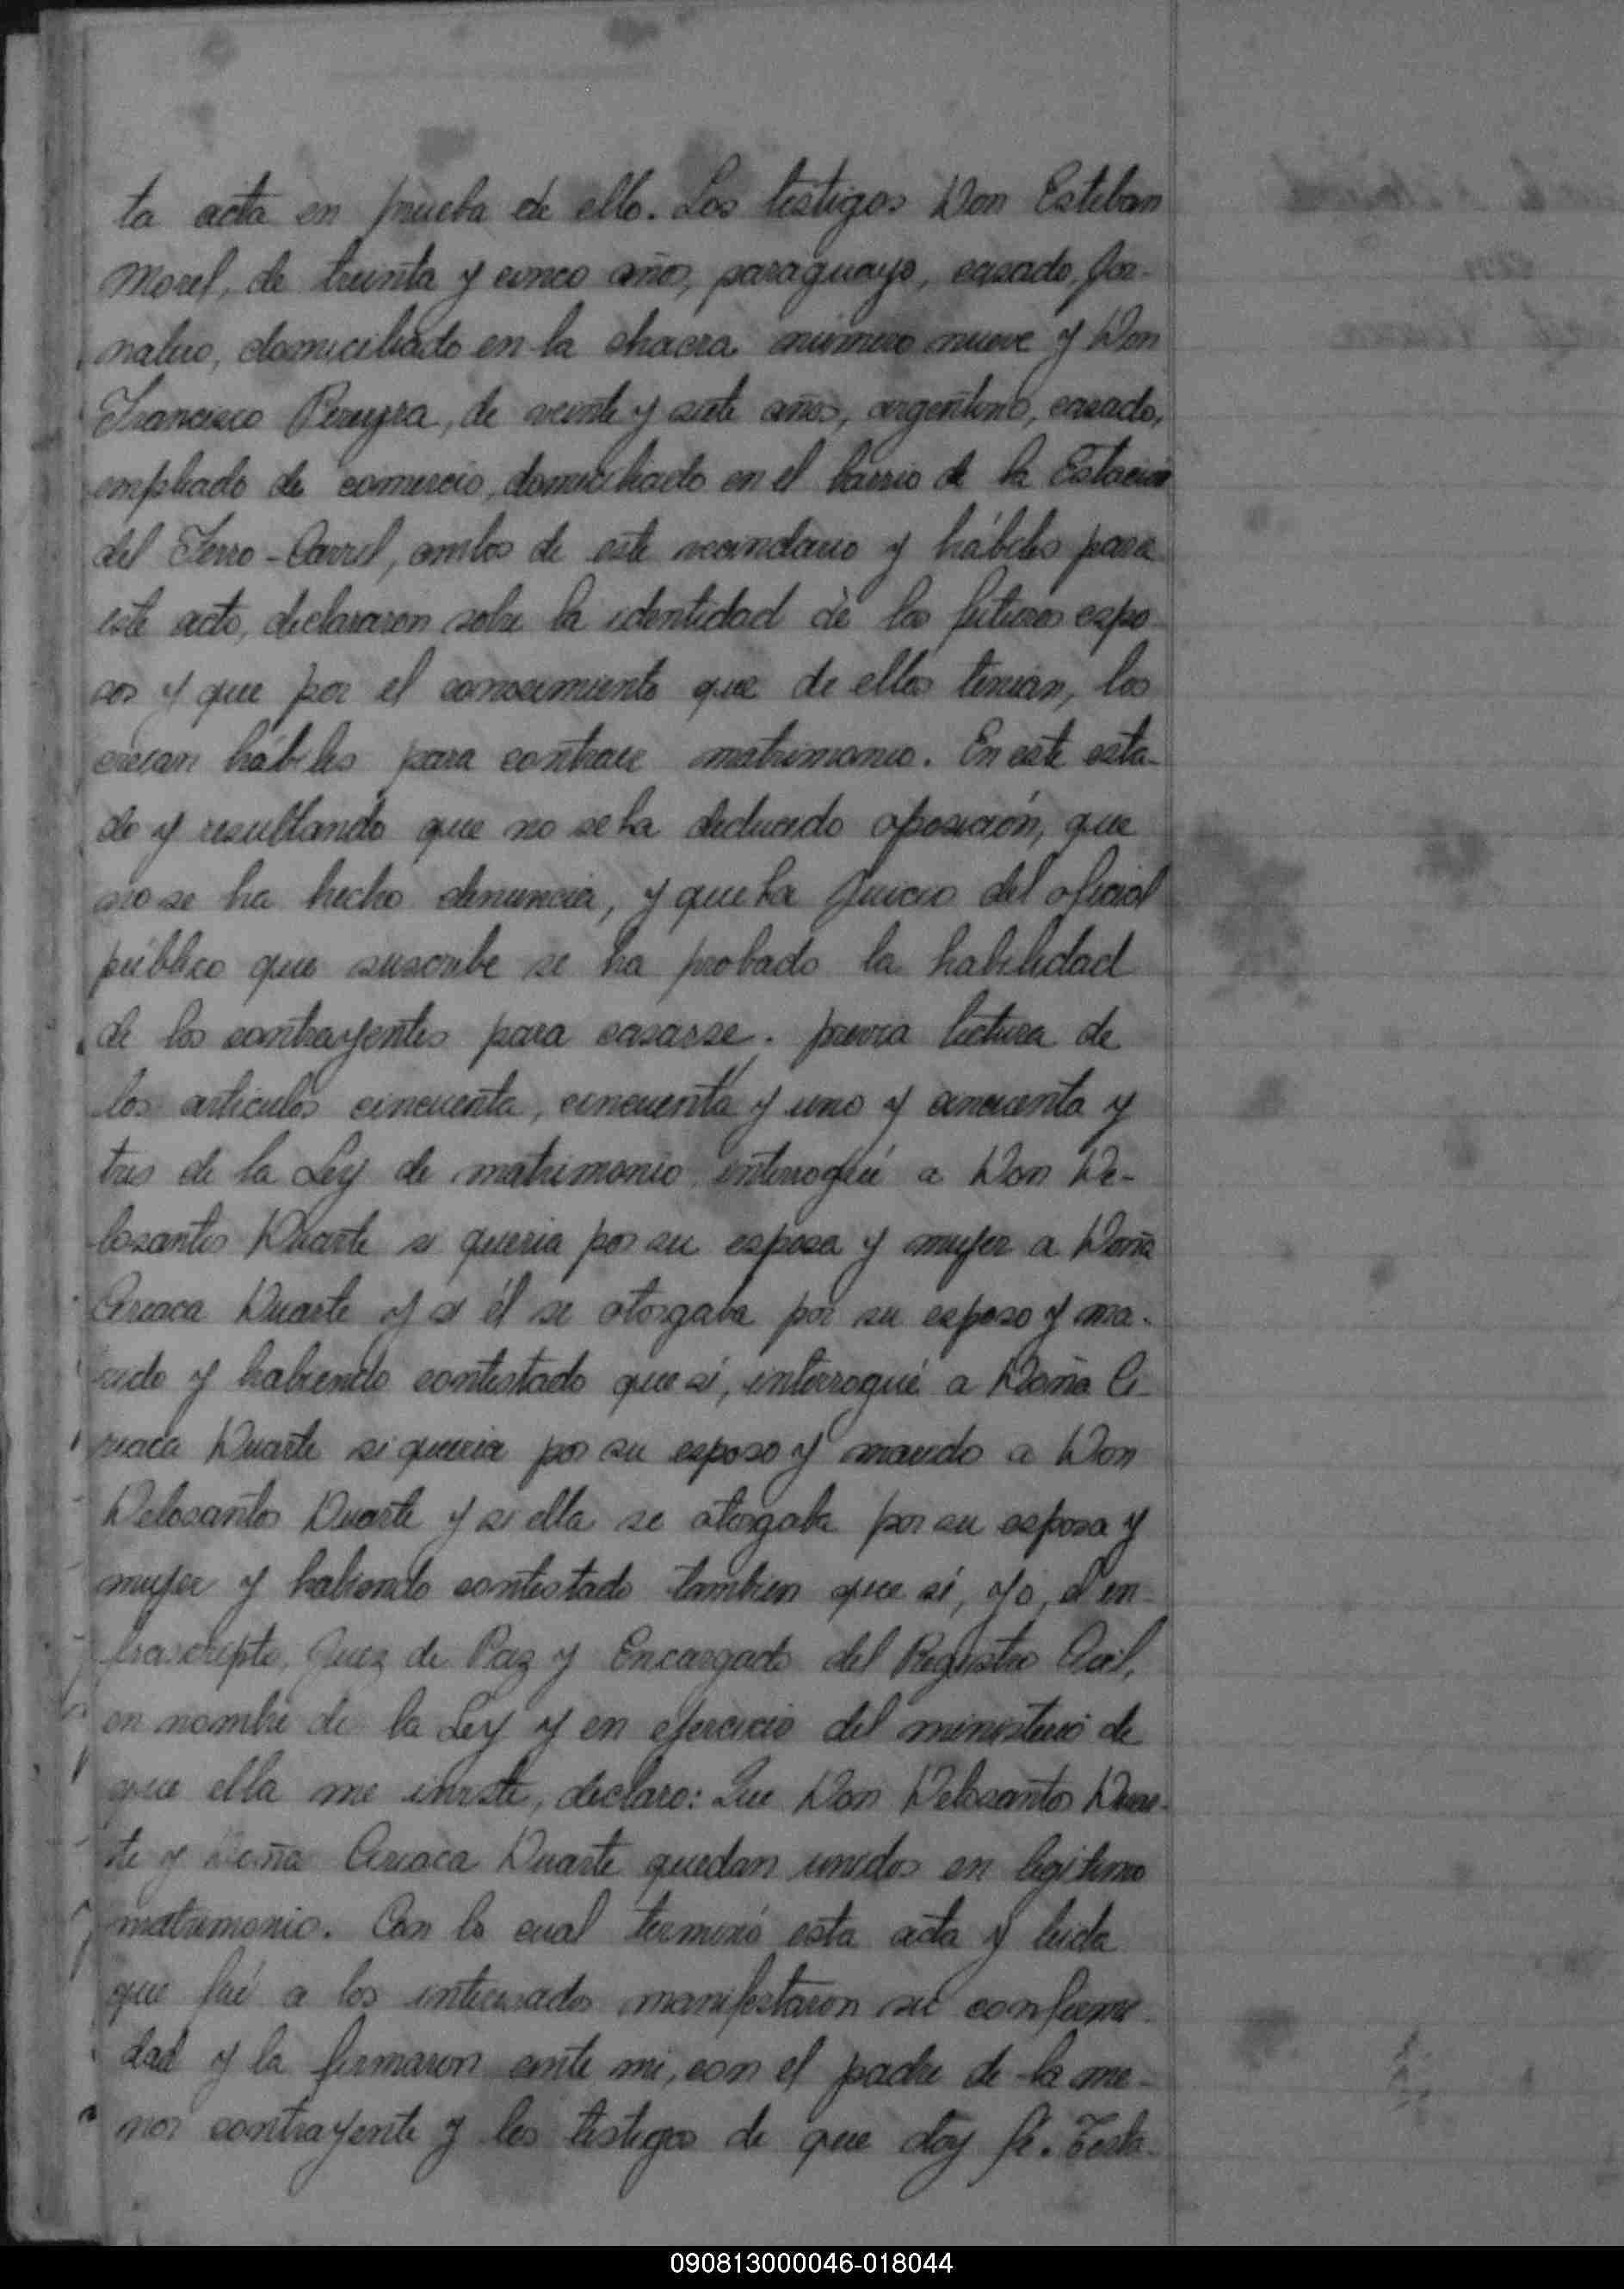 ta acta en prueba de ello. Los testigos Don Esteban
Morel, de treinta y cinco años, paraguayo, casado, jor-
nalero, domiciliado en la chacra número nueve y Don
Francisco Pereyra, de veinte y siete años, argentino, casado,
empleado de comercio, domiciliado en el barrio de la Estación
del Ferro-Carril, ambos de este vecindario y hábiles para
este acto, declararon sobre la identidad de los futuros espo-
sos y que por el conocimiento que de ellos tenian, los
creian hábiles para contraer matrimonio. En este esta-
do y resultando que no se ha deducido oposición, que
no se ha hecho denuncia, y que ha juicio del oficial
público que suscribe se ha probado la habilidad
de los contrayentes para casarse; previa lectura de
los articulos cincuenta, cincuenta y uno y cincuenta y
tres de la Ley de matrimonio interrogué a Don De-
losantos Duarte si queria por su esposa y mujer a Doña
Ciriaca Duarte y si él se otorgaba por su esposo y ma-
rido y habiendo contestado que sí, interrogué a Doña Ci-
riaca Duarte si queria por su esposo y marido a Don
Delosantos Duarte y si ella se otorgaba por su esposa y
mujer y habiendo contestado tambien que sí, yo, el in-
frascripto, Juez de Paz y Encargado del Registro Civil,
en nombre de la Ley y en ejercicio del ministerio de
que ella me inviste, declaro: Que Don Delosantos Duar-
te y Doña Ciriaca Duarte quedan unidos en legitimo
matrimonio. Con lo cual terminó esta acta y leida
que fué a los interesados manifestaron su conformi-
dad y la firmaron ante mi, con el padre de la me-
nor contrayente y los testigos de que doy fé. Testa-
090813000046-018044